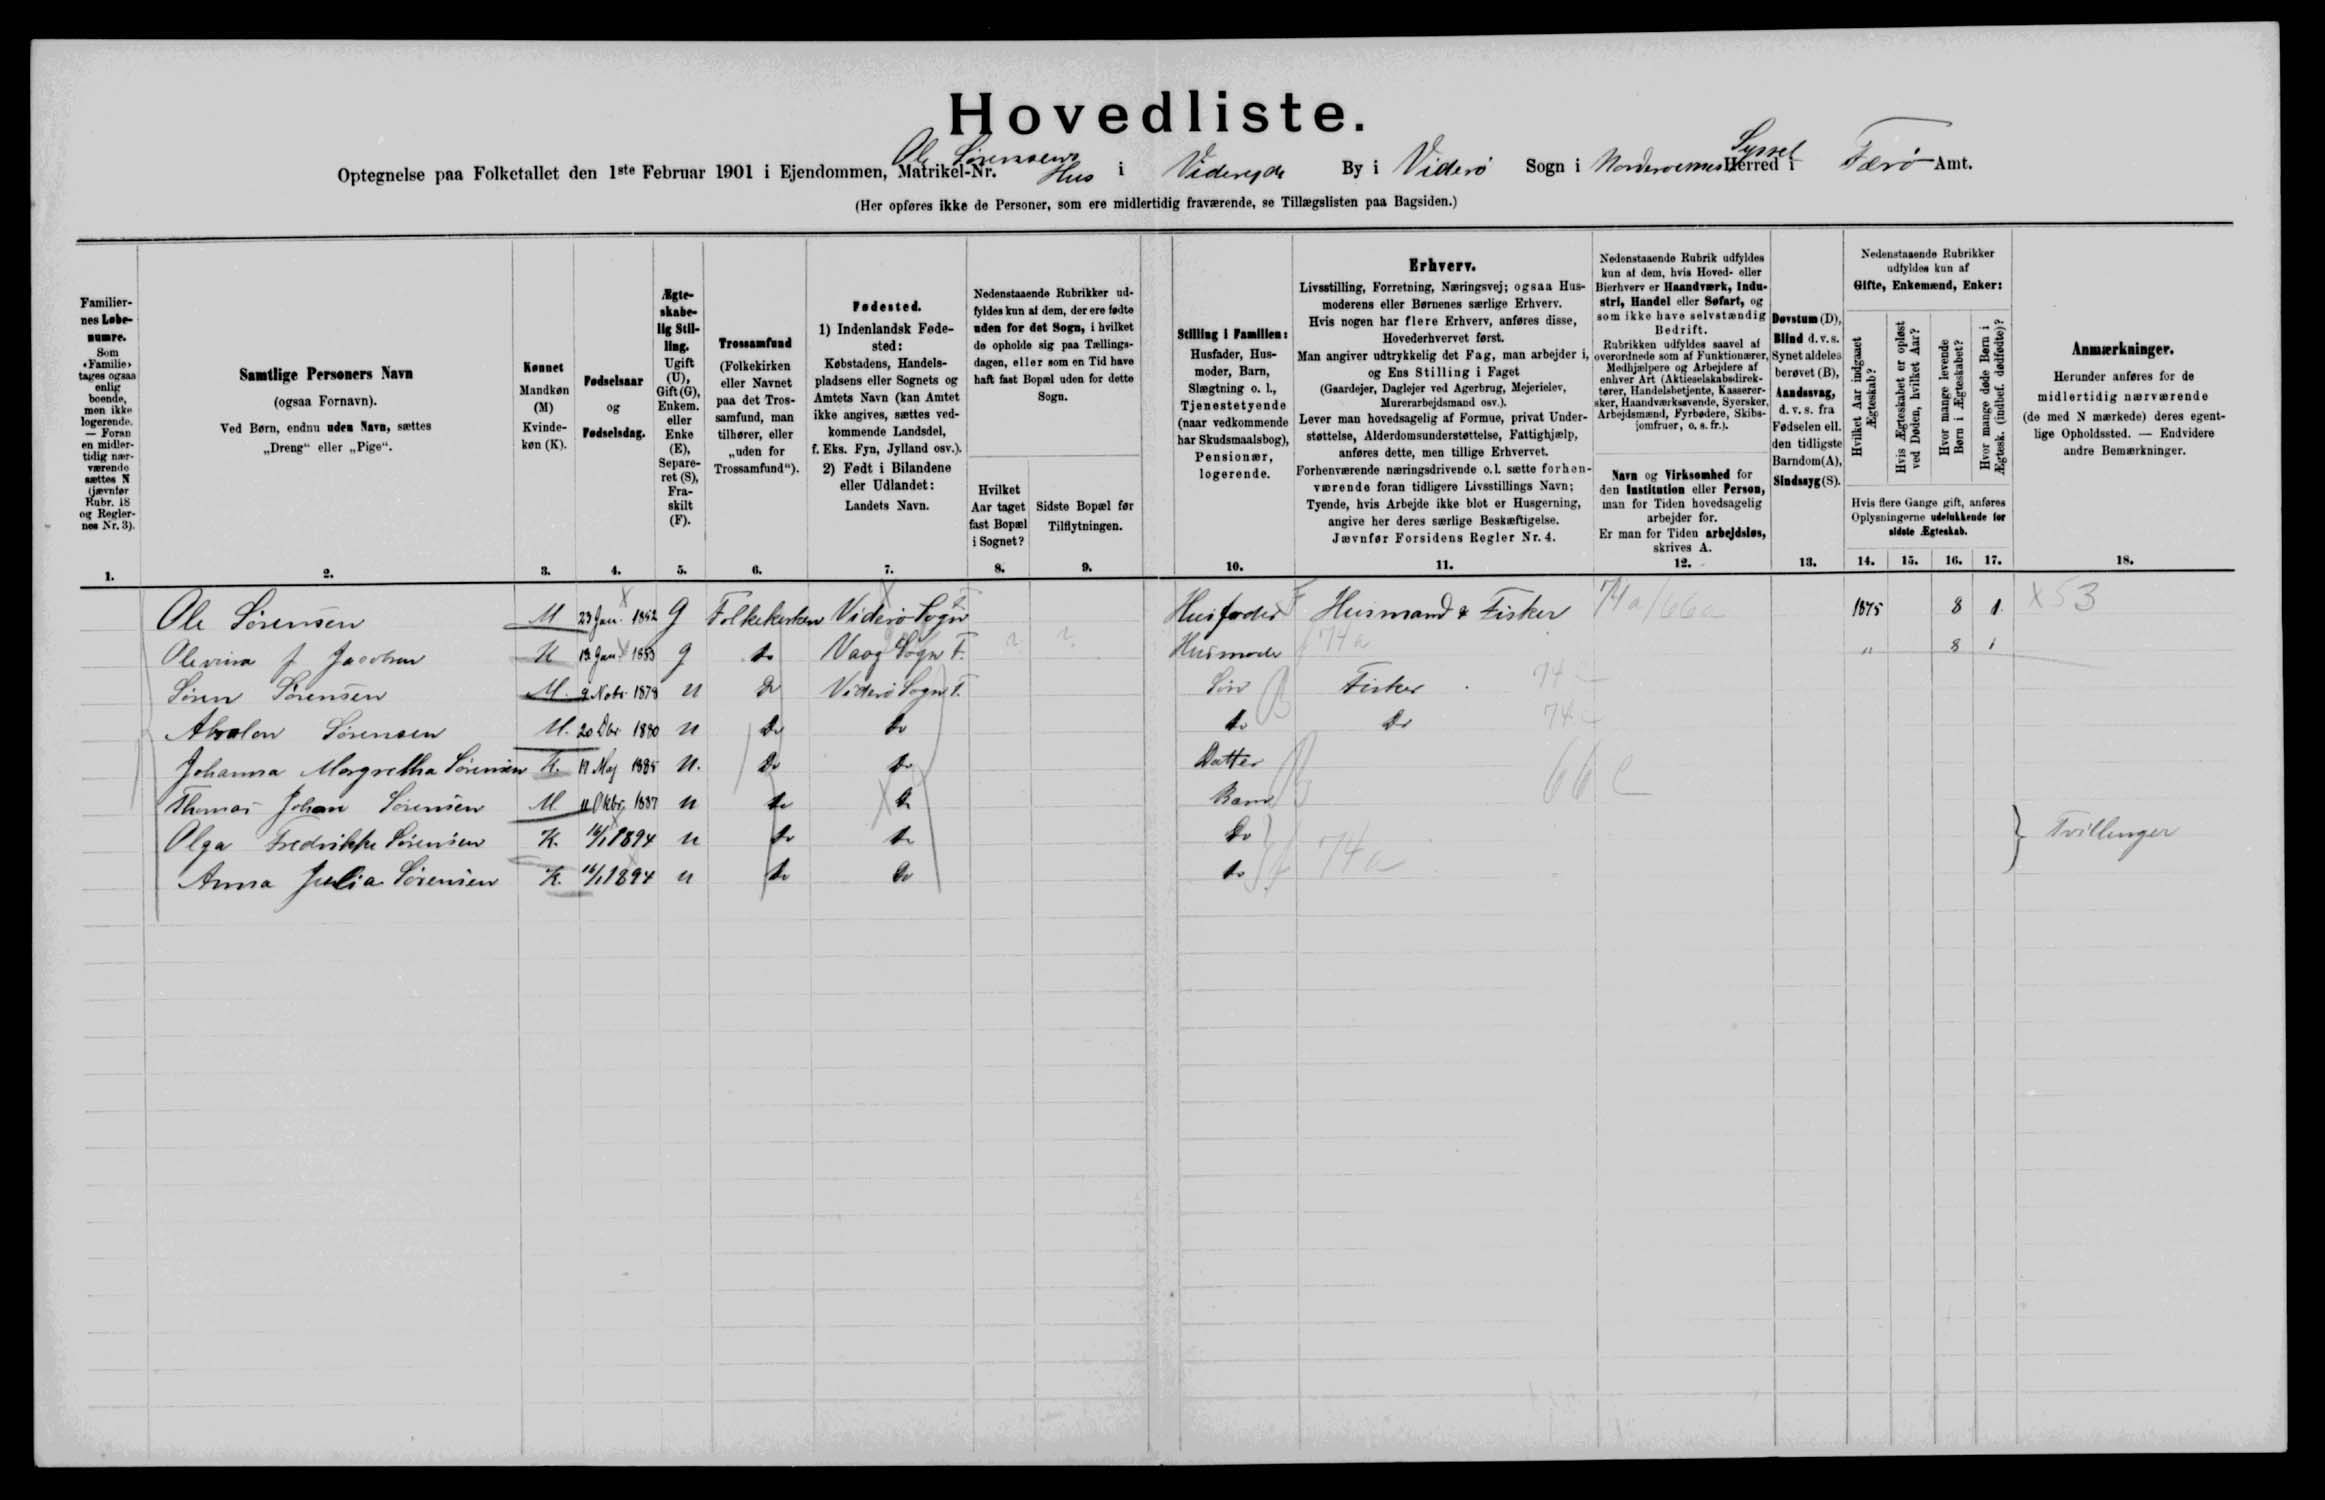 Hovedliste.
Optegnelse paa Folketallet den 1ste Februar 1901 i Ejendommen, Matrikel-Nr. Ole Sørensens Hus i Videreide By i Viderø Sogn i Norderoernes Herred i Syssel Færø Amt.
(Her opføres ikke de Personer, som ere midlertidig fraværende, se Tillægslisten paa Bagsiden.)
Familiernes Løbenumre.
Som «Familie» tages ogsaa enlig boende, men ikke logerende. — Foran en midlertidig nærværende sættes N (jævnfør Rubr. 18 og Reglernes Nr. 3).
Samtlige Personers Navn
(ogsaa Fornavn).
Ved Børn, endnu uden Navn, sættes
„Dreng“ eller „Pige“.
Kønnet
Mandkøn (M)
Kvindekøn (K).
Fødselsaar
og
Fødselsdag.
Ægteskabelig Stilling.
Ugift (U), Gift (G), Enkem. eller Enke (E), Separeret (S), Fraskilt (F).
Trossamfund
(Folkekirken eller Navnet paa det Trossamfund, man tilhører, eller „uden for Trossamfund“).
Fødested.
1) Indenlandsk Fødested:
Købstadens, Handelspladsens eller Sognets og Amtets Navn (kan Amtet ikke angives, sættes vedkommende Landsdel, f. Eks. Fyn, Jylland osv.).
2) Født i Bilandene eller Udlandet:
Landets Navn.
Nedenstaaende Rubrikker udfyldes kun af dem, der ere fødte uden for det Sogn, i hvilket de opholde sig paa Tællingsdagen, eller som en Tid have haft fast Bopæl uden for dette Sogn.
Hvilket Aar taget fast Bopæl i Sognet?
Sidste Bopæl før Tilflytningen.
Stilling i Familien:
Husfader, Husmoder, Barn, Slægtning o. l., Tjenestetyende (naar vedkommende har Skudsmaalsbog), Pensionær, logerende.
Erhverv.
Livsstilling, Forretning, Næringsvej; ogsaa Husmoderens eller Børnenes særlige Erhverv.
Hvis nogen har flere Erhverv, anføres disse, Hovederhvervet først.
Man angiver udtrykkelig det Fag, man arbejder i, og Ens Stilling i Faget
(Gaardejer, Daglejer ved Agerbrug, Mejerielev, Murerarbejdsmand osv.).
Lever man hovedsagelig af Formue, privat Understøttelse, Alderdomsunderstøttelse, Fattighjælp, anføres dette, men tillige Erhvervet.
Forhenværende næringsdrivende o. l. sætte forhenværende foran tidligere Livsstillings Navn;
Tyende, hvis Arbejde ikke blot er Husgerning, angive her deres særlige Beskæftigelse.
Jævnfør Forsidens Regler Nr. 4.
Nedenstaaende Rubrik udfyldes kun af dem, hvis Hoved- eller Bierhverv er Haandværk, Industri, Handel eller Søfart, og som ikke have selvstændig Bedrift.
Rubrikken udfyldes saavel af overordnede som af Funktionærer, Medhjælpere og Arbejdere af enhver Art (Aktieselskabsdirektører, Handelsbetjente, Kasserersker, Haandværkssvende, Syersker, Arbejdsmænd, Fyrbødere, Skibsjomfruer, o. s. fr.).
Navn og Virksomhed for den Institution eller Person, man for Tiden hovedsagelig arbejder for.
Er man for Tiden arbejdsløs, skrives A.
Døvstum (D), Blind d. v. s. Synet aldeles berøvet (B), Aandssvag, d. v. s. fra Fødselen ell. den tidligste Barndom (A), Sindssyg (S).
Nedenstaaende Rubrikker udfyldes kun af
Gifte, Enkemænd, Enker:
Hvilket Aar indgaaet Ægteskab?
Hvis Ægteskabet er opløst ved Døden, hvilket Aar?
Hvor mange levende Børn i Ægteskabet?
Hvor mange døde Børn i Ægtesk. (indbef. dødfødte)?
Hvis flere Gange gift, anføres Oplysningerne udelukkende for sidste Ægteskab.
Anmærkninger.
Herunder anføres for de midlertidig nærværende (de med N mærkede) deres egentlige Opholdssted. — Endvidere andre Bemærkninger.
1. 2. 3. 4. 5. 6. 7. 8. 9. 10. 11. 12. 13. 14. 15. 16. 17. 18.
Ole Sørensen M 23 Jan. 1852 G Folkekirken Viderø Sogn F Husfader F Husmand & Fisker 74a/66a 1875 8 1. X53
Olevina f Jacobsen K 13 Jan. 1853 g do Vaag Sogn F. ? ? Husmoder 74a " 8 1
Søren Sørensen M. 2 Nobr 1878 U Do Viderø Sogn F. Søn Fisker 74
Absalon Sørensen M. 20 Dbr 1880 U Do Do do Do 74
Johanna Margretha Sørensen K. 11 Maj 1885 U. Do Do Datter 66 c
Thomas Johan Sørensen M 11 Oktbr. 1887 U do Do Barn
Olga Fredrikke Sørensen K. 16/1 1894 U do do Do 74a } Tvillinger
Anna Julia Sørensen K. 16/1 1894 U do Do do